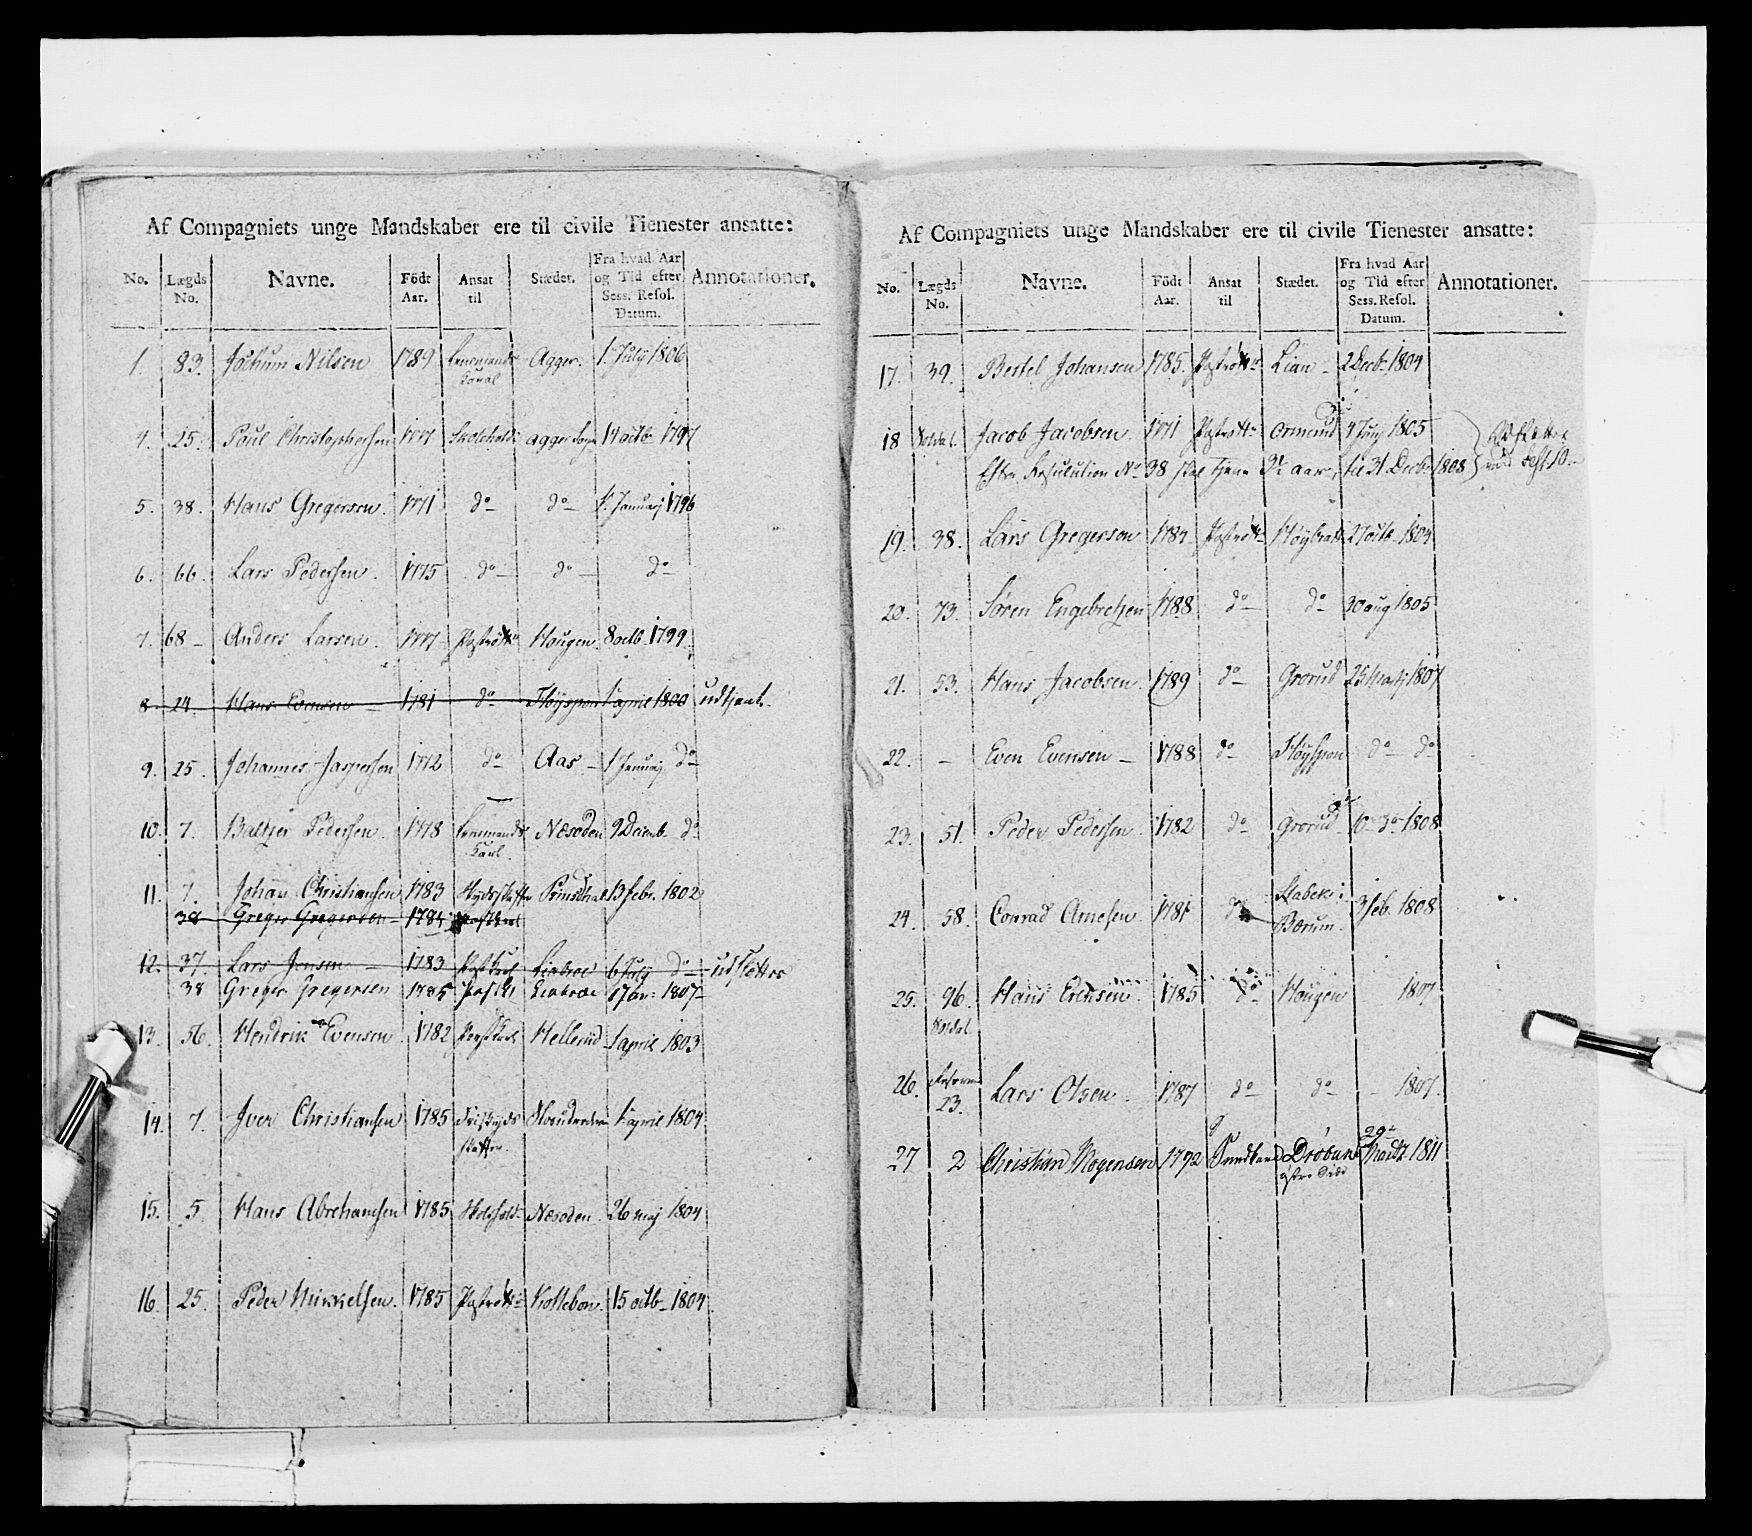 Af Compagniets unge Mandskaber ere til civile Tienester ansatte:
No. Lægds No. Navne. Födt Aar. Ansat til Stædet. Fra hvad Aar og Tid efter Sess. Resol. Datum. Annotationer.
1. 83. Jochum Nilsen 1789 Lensmands Karal Agger. 1. July 1806
4. 25. Poul Christophersen 1777 Skoleholdr Agger Sogn 14 octb 1797
5. 38. Hans Gregersen. 1771 do do 1. Januarj 1796
6. 66. Lars Pedersen. 1775 do do do
7. 68 Anders Larsen. 1777 Hougen. 8 octb. 1799.
8. 24. Hans Evensen 1781 do Höyspon 1 april 1800 udtjent.
9. 25. Johannes Jaspersen 1772 do Aas 1 Januarj do
10. 7. Baltzer Pedersen. 1778 Lensmands Karl. Næsoden 9 Decemb. do
11. 7. Johan Christiansen 1783 Skydsskaffer Prinsdal 13 febr. 1802
38 Greger Gregersen 1784 Postkarl
12. 37. Lars Jensen 1783 Postkarl Liabroe 6 July do udslettes
38 Greger Gregersen 1785 Liabroe 1807
13. 56. Hendrik Evensen 1782 Postkarl Hellerud 1 april 1803
14. 7. Iver Christiansen 1785 skaffer. 1 april 1804
15. 5. Hans Abrahamsen 1785 Skoleholdr Næsoden. 26 maj 1804
16. 25. Peder Mikkelsen. 1785 15 octb 1804
Af Compagniets unge Mandskaber ere til civile Tienester ansatte:
No. Lægds No. Navne. Födt Aar. Ansat til Stædet. Fra hvad Aar og Tid efter Sess. Resol. Datum. Annotationer.
17. 39. Bertel Johansen 1785. Lian 2 Decb. 1804
18 Jacob Jacobsen. 1771 Ormund 4 Juny 1805
Efter Resulution No 38 skal tjene 3½ aar, til 31 Decb. 1808
19. 38. Lars Gregersen 1784 Höybraten 27 octb. 1804
20. 73. Sören Engebretzen 1788 do do 30 aug 1805
21. 53. Hans Jacobsen. 1789 do Grorud 1807
22. Even Evensen 1788 do Höyspon do do
23. 51. Peder Pedersen. 1782 do Grorud 1808
24. 58. Conrad Arnesen do Stabek i Bærum. 3 feb. 1808
25. 96. Hans Erichsen. 1785 do Hougen 1807
26. 23. Lars Olsen. 1787 do do 1807.
27 2 Christian Mogensen 1792 29de Martz 1811